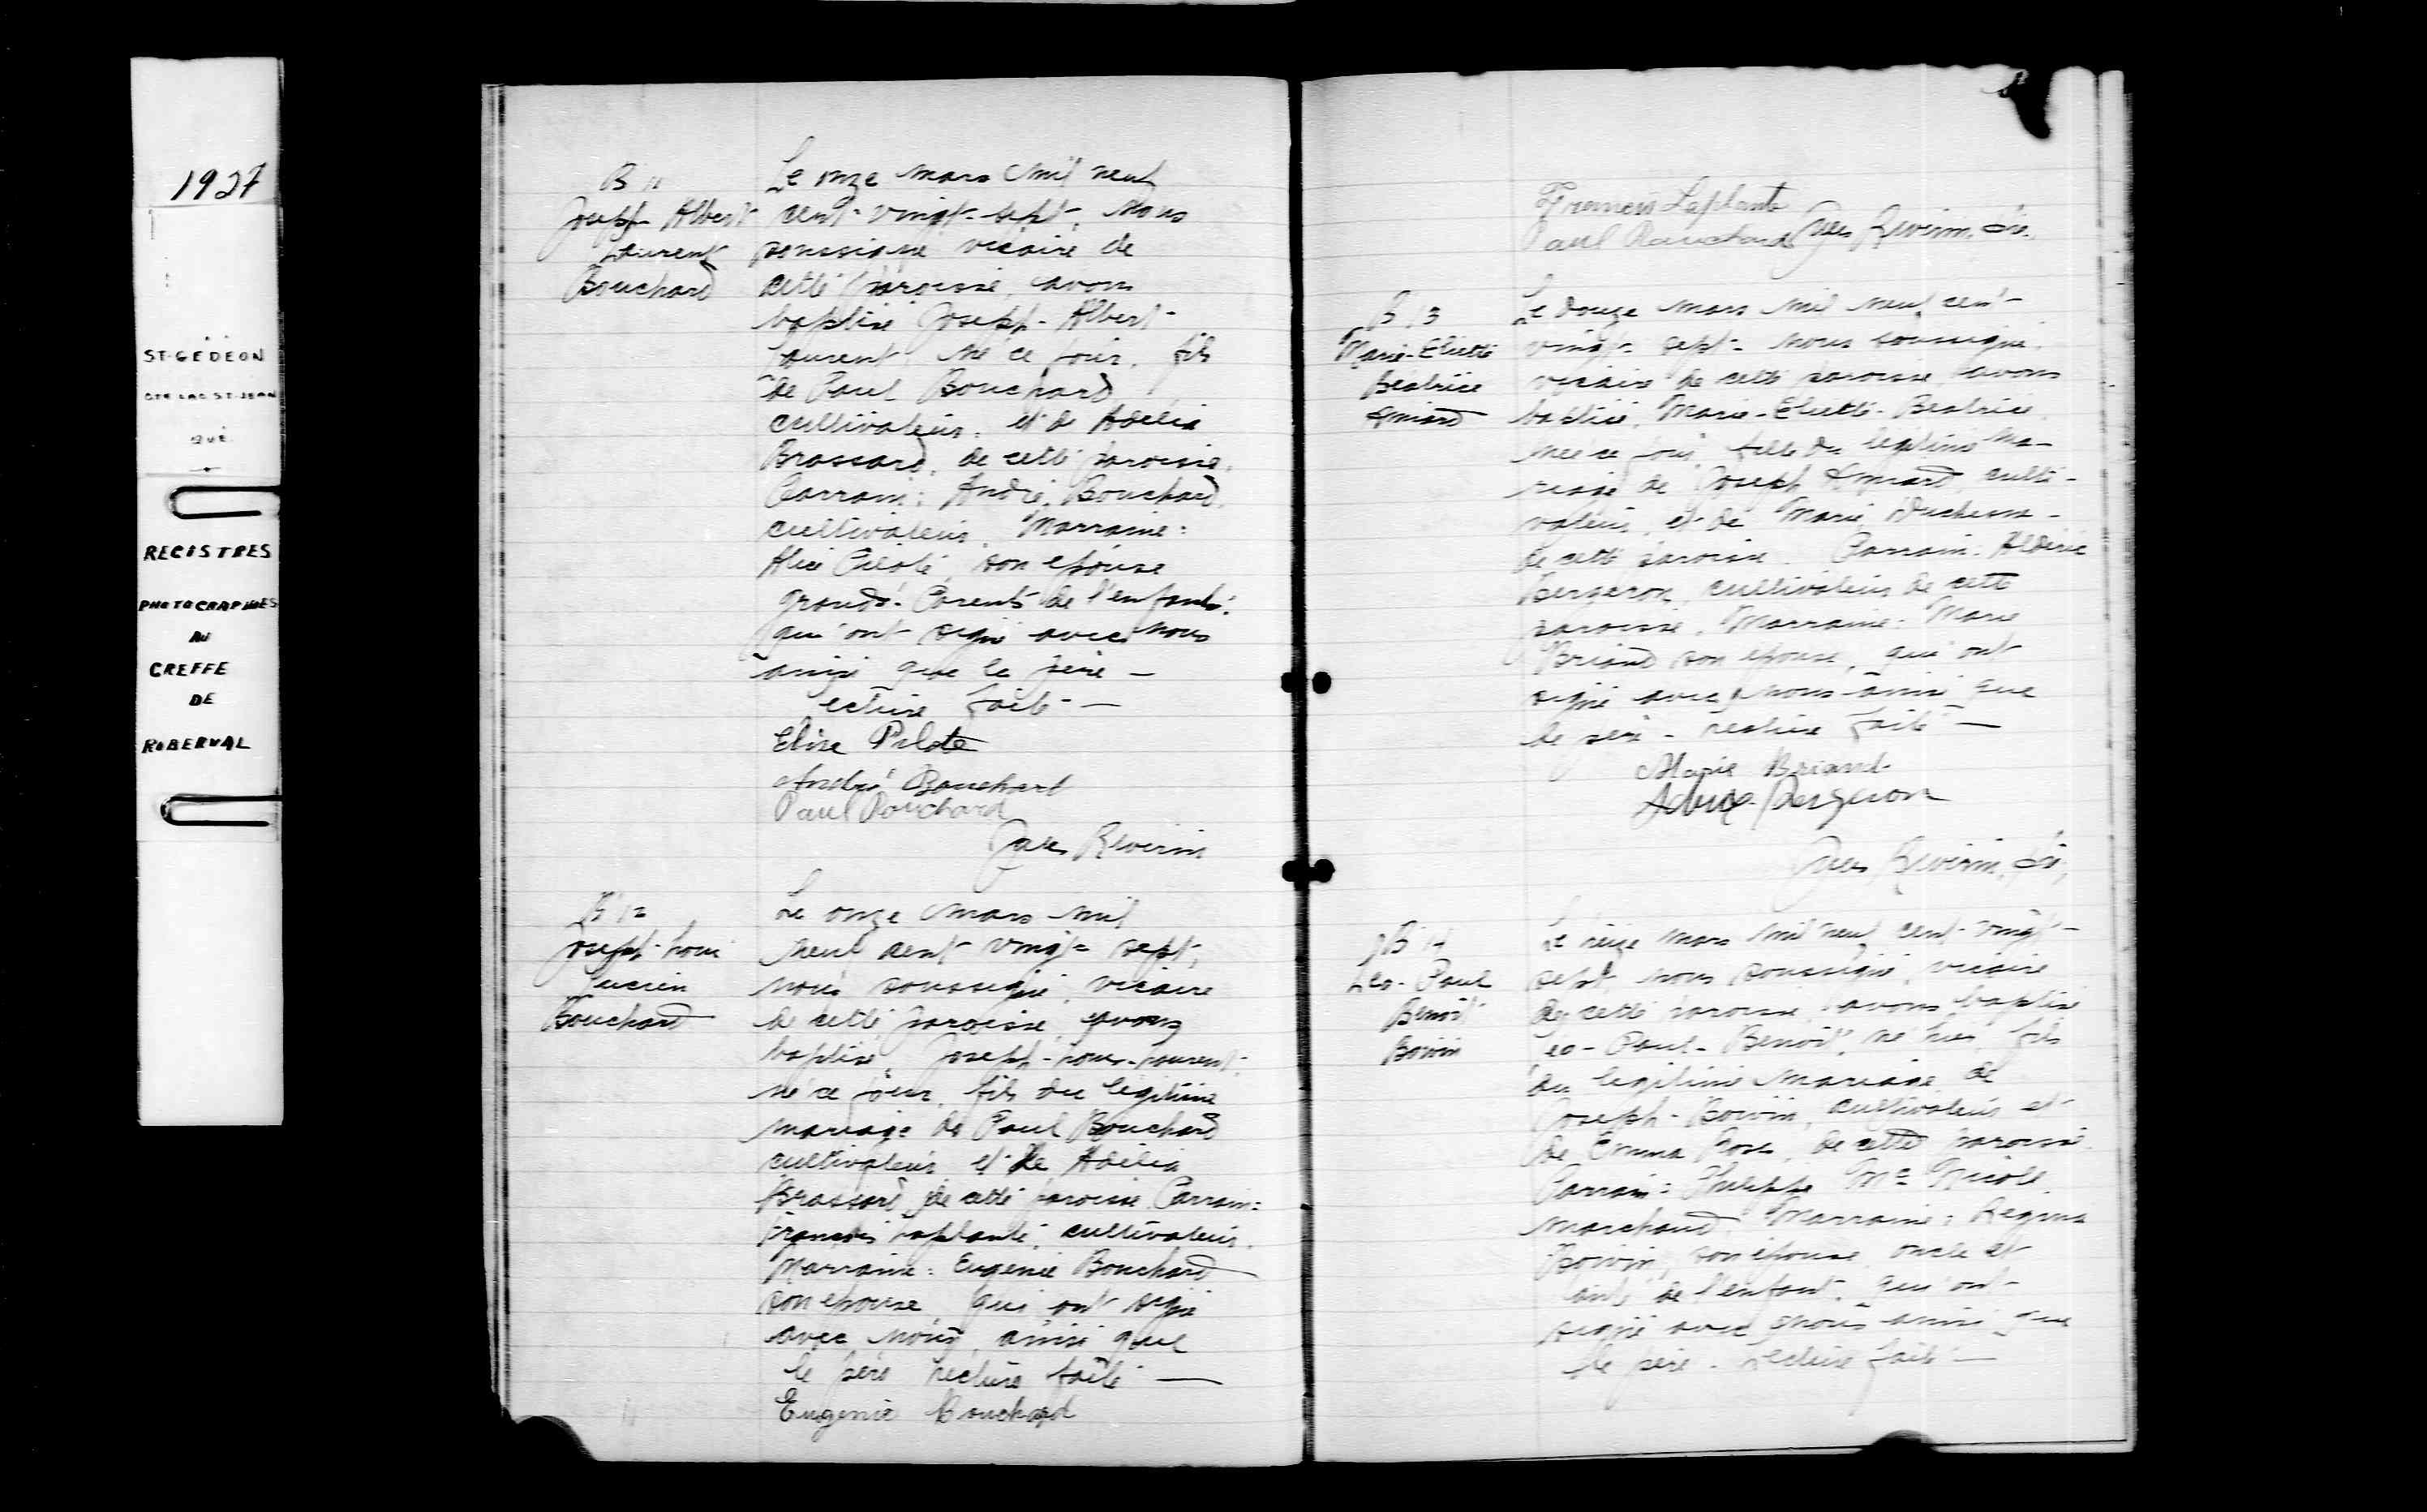 1927
ST-GEDEON
CTE LAC ST-JEAN
QUÉ.
REGISTRES
PHOTOGRAPHIES
AU
GREFFE
DE
ROBERVAL
B 11
Joseph Albert
Laurent
Bouchard
Le onze mars mil neuf
cent vingt-sept, nous
soussigné vicaire de
cette paroisse, avons
baptisé Joseph-Albert-
Laurent né ce jour, fils
de Paul Bouchard
cultivateur, et de Adélia
Brassard, de cette paroisse.
Parrain: André Bouchard,
cultivateur, Marraine:
Pilote, son épouse
grands-Parents de l'enfant,
qui ont signé avec nous
ainsi que le père —
Lecture faite —
Elise Pilote
André Bouchard
Paul Bouchard
Jules Riverin
B 12
Joseph-Louis
Lucien
Bouchard
Le onze mars mil
neuf cent vingt-sept,
nous soussigné, vicaire
de cette paroisse, avons
baptisé Joseph-Louis-Laurent
né ce jour, fils du légitime
mariage de Paul Bouchard
cultivateur et de Adélia
Brassard de cette paroisse. Parrain:
François Laplante, cultivateur.
Marraine: Eugénie Bouchard
son épouse, qui ont signé
avec nous, ainsi que
le père Lecture faite —
Eugenie Bouchard
Francois Laplante
Paul Bouchard Jules Riverin, ptre.
B 13
Marie-Eliette
Béatrice
Simard
Le douze mars mil neuf cent-
vingt-sept- nous soussigné,
vicaire de cette paroisse, avons
baptisé, Marie-Eliette-Béatrice,
née ce jour, fille du légitime ma-
riage de Joseph Simard, culti-
vateur, et de Marie Duchesne-
de cette paroisse. Parrain: Aldéric
Bergeron, cultivateur de cette
paroisse, Marraine: Marie
Briand son épouse, qui ont
signé avec nous ainsi que
le père - Lecture faite —
Marie Briand
Bergeron
Jules Riverin, ptre,
B 14
Leo-Paul
Benoît
Boivin
Le treize mars mil neuf cent-vingt-
sept, nous soussigné, vicaire
de cette paroisse, avons baptisé
Leo-Paul-Benoît, né hier, fils
du légitime mariage de
Joseph-Boivin, cultivateur et
de Emma Ross, de cette paroisse.
Parrain: Philippe Mc Nicoll
marchand, Marraine: Regina
Boivin, son épouse, oncle et
tante de l'enfant, qui ont
signé avec nous ainsi que
le père - Lecture faite —